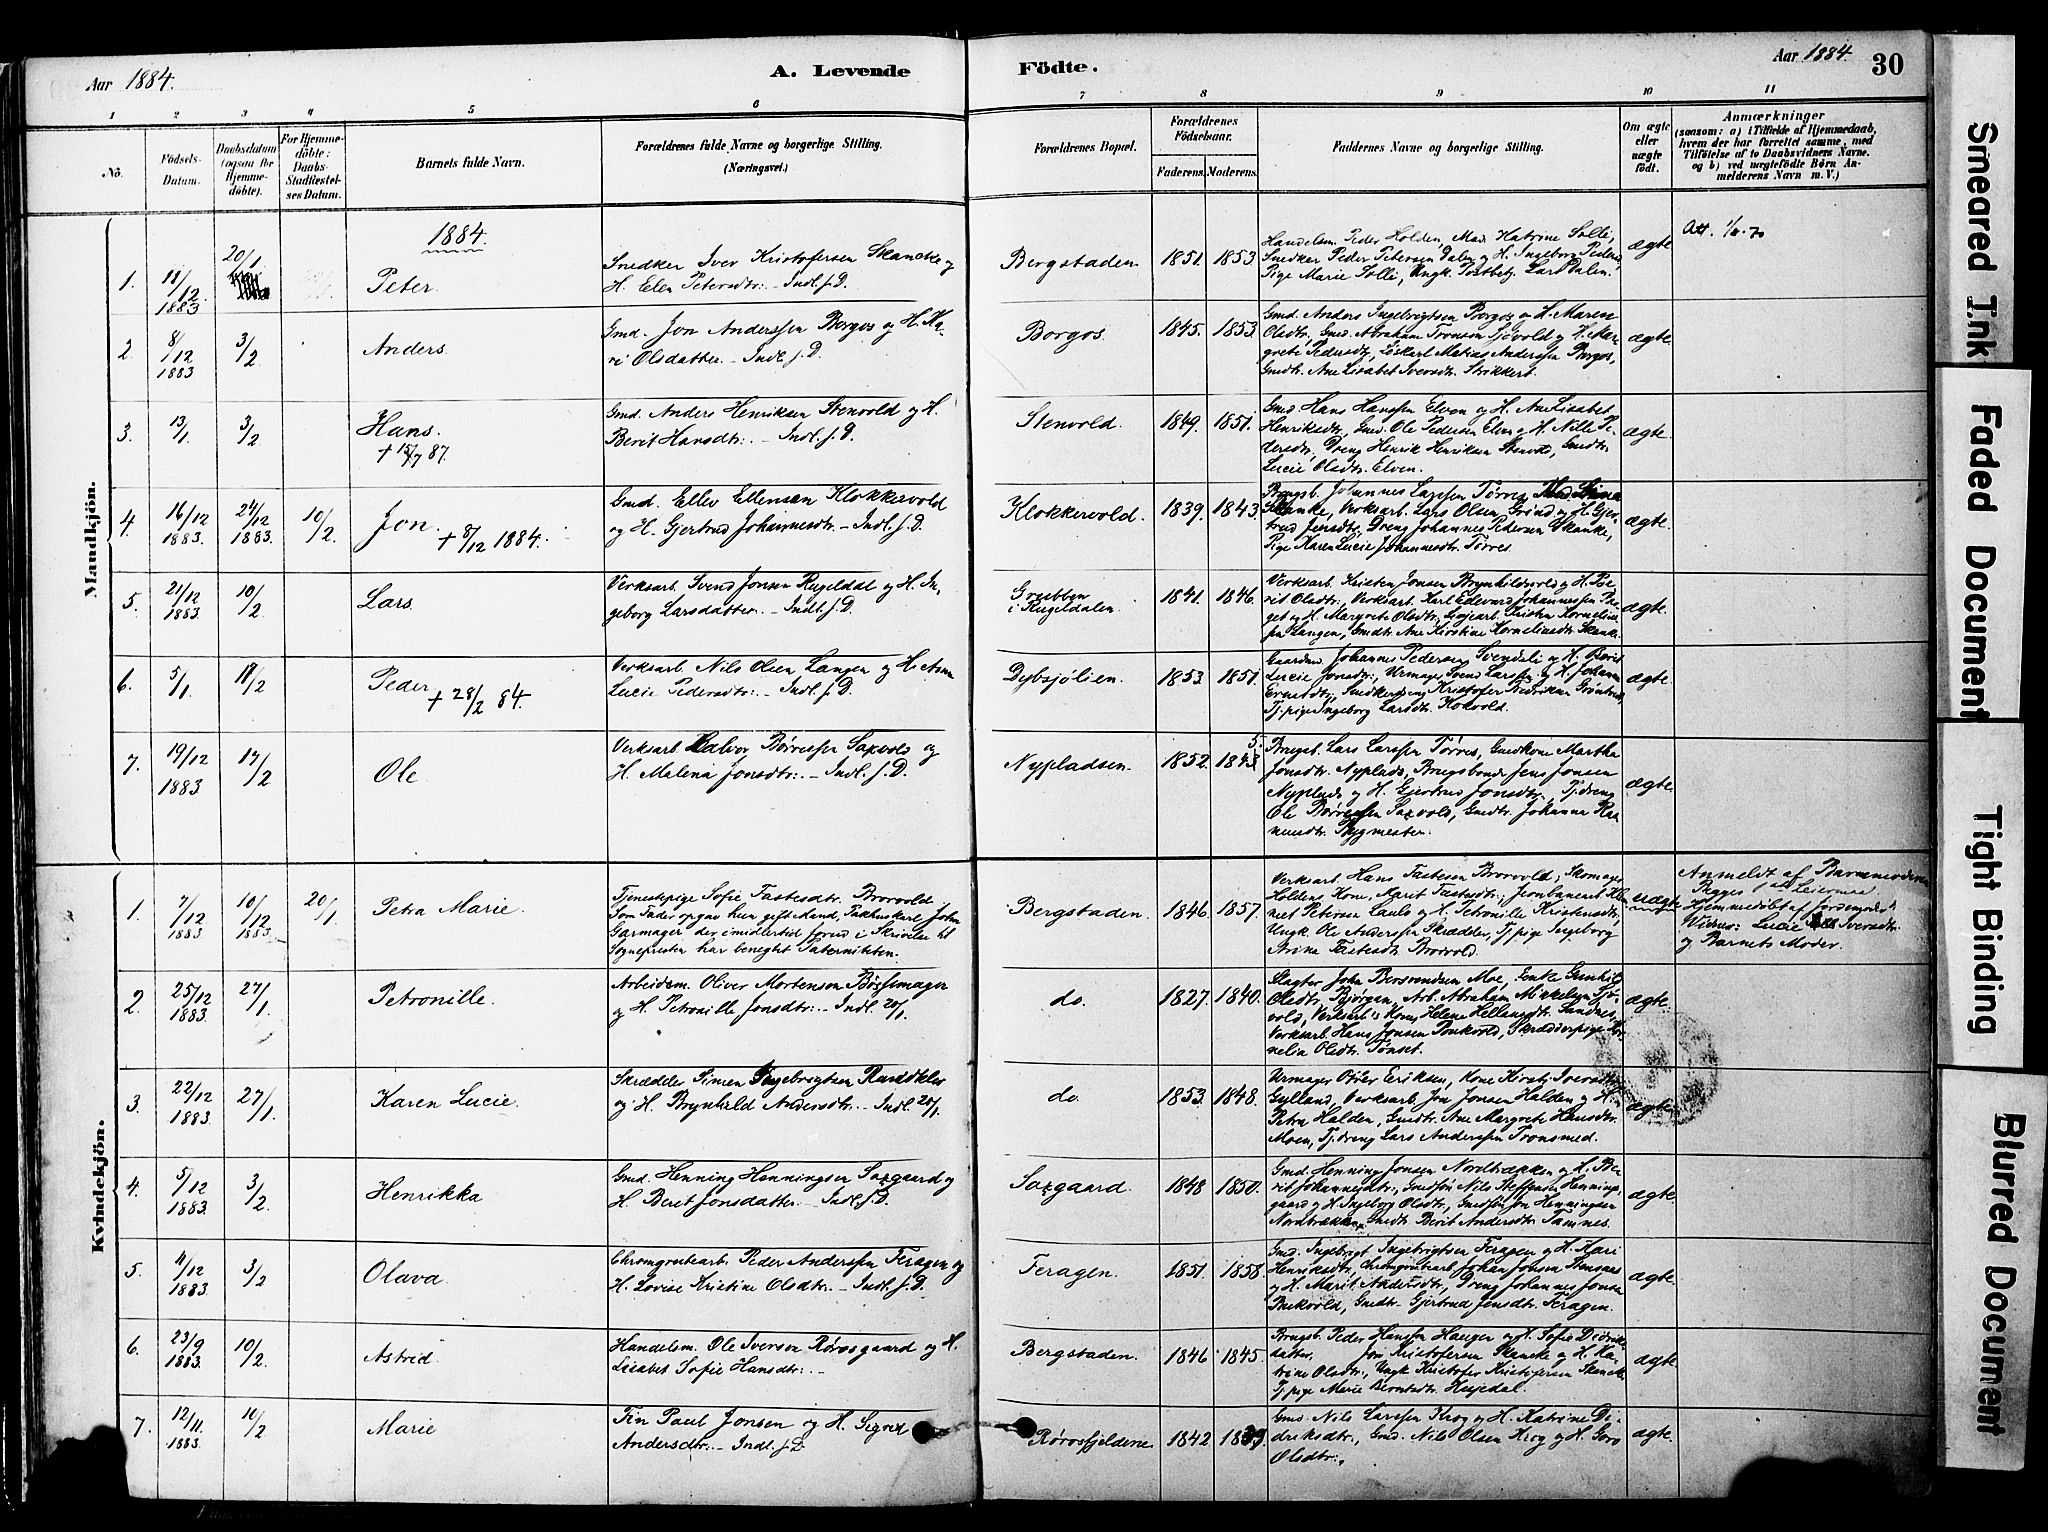 Aar 1884.
A. Levende Födte.
Aar 1884.
30
1 2 3 4 5 6 7 8 9 10 11
No.
Födsels-
Datum.
Daabsdatum
(ogsaa for
Hjemme-
döbte).
For Hjemme-
döbte:
Daabs-
Stadfæstel-
ses Datum.
Barnets fulde Navn.
Forældrenes fulde Navne og borgerlige Stilling.
(Næringsvei.)
Forældrenes Bopæl.
Forældrenes
Födselsaar.
Faderens.
Moderens.
Faddernes Navne og borgerlige Stilling.
Om ægte
eller
uægte
födt.
Anmærkninger
(saasom: a) i Tilfælde af Hjemmedaab,
hvem der har forrettet samme, med
Tilföielse af to Daabsvidners Navne,
og b) ved uægtefödte Börn An-
melderens Navn m. V.)
Mandkjön.
1884.
1.
18/12
1883
20/1
Peter
Snedker Iver Kristofersen Skancke og
H. Elen Petersdtr: – Indl. f. D.
Bergstaden
1851.
1853
Handelsm. Peder Holden, Mad. Katrine Solli,
Snedker Peder Petersen Dalen og H. Ingeborg Peders
Pige Marie Solli, Ungk. Postbetj. Lars Dalen.
ægte
Att.
2
8/12
1883
3/2
Anders.
Gmd. Jon Anderssen Borgos og H. Ka-
ri Olsdatter. – Indl. f. D.
Borgos
1845.
1853.
Gmd. Anders Ingebrigtsen Borgos og H. Maren
Olsdtr, Gmd. Abraham Tronsen Sjövold og H. Mar-
grete Pedersdtr, Löskarl Matias Anderssen Borgos,
Gmdtr. Ane Lisabet Iversdtr. Strikkert.
ægte
3.
13/1.
3/2
Hans.
+ 15/7 87.
Gmd. Anders Henriksen Stenvold og H.
Berit Hansdtr: – Indl. f. D.
Stenvold.
1849.
1851.
Gmd. Hans Hanssen Elven og H. Ane Lisabet
Henriksdtr, Gmd. Ole Pedersen Elven og H. Nille Pe-
dersdtr, Dreng Henrik Henriksen Stenvold, Gmdtr.
Lucie Olsdtr. Elven.
ægte.
4.
16/12
1883.
24/12
1883.
10/2.
Jon.
+ 8/12 1884.
Gmd. Ellev Ellevsen Klokkervold
og H. Gjertrud Johannesdtr. – Indl. f. D.
Klokkervold.
1839.
1843.
Brugsb. Johannes Larssen Törres, Mad. Stina
Skanke, Verksarb. Lars Olsen Grind og H. Gjer-
trud Jensdtr, Dreng Johannes Pedersen Skanke,
Pige Karen Lucie Johannesdtr. Törres.
ægte.
5.
21/12
1883.
10/2
Lars.
Verksarb. Svend Jonsen Rugeldal og H. In-
geborg Larsdatter. – Indl. f. D.
Grubben
i Rugeldalen.
1841.
1846.
Verksarb. Kristen Jonsen Brynhildsvold og H. Be-
rit Olsdtr., Verksarb. Karl Edevard Johannessen Ber-
get og H. Margrete Olsdtr, Kristen Kornelius-
sen Langen, Gmdtr. Ane Kirstine Korneliusdtr. Skanke
ægte.
6.
5/1.
Peder
+ 28/2 84.
Verksarb. Nils Olsen Langen og H. Anna
Lucie Pedersdtr: – Indl. f. D.
Dybsjölien.
1853.
1851.
Gaardmd. Johannes Pedersen Svendsli og H. Berit
Lucie Jonsdtr., Urmager Svend Larssen og H. Johanna
Evensdtr., Snedkerdreng Kristofer Fredriksen Gröntrud,
Tj.pige Ingeborg Larsdtr. Kokvold.
ægte.
7.
19/12
1883
17/2
Ole
Verksarb. Halvor Börresen Saxvold og
H. Malena Jonsdtr: – Indl. f. D.
Nypladsen.
1852.
1843
5.
Brugsb. Lars Larssen Törres, Gmdkone Martha
Jonsdtr. Nyplads, Brugsbonde Jens Jonsen
Nyplads og H. Gjertrud Jonsdtr. Tj.dreng
Ole Börresen Saxvold, Gmdtr. Johanna Ras-
musdtr. Bygmester.
ægte.
Kvindekjön.
1.
7/12
1883
10/12
1883.
20/1
Petra Marie.
Tjenestepige Sofie Fastesdtr. Brovold
Som Fader opgav hun gift Mand, Pakhuskarl John
Garmager der imidlertid forud i Skrivelse til
Sognepresten har benegtet Paterniteten.
Bergstaden.
1846.
1857.
Verksarb. Hans Fastesen Brovold, Skomager
Holdens Kone, Marit Fastesdtr., Jernbanearb. Kle-
met Petersen Lauls og H. Petronille Kristensdtr,
Ungk. Ole Anderssen Skrædder, Tj.pige Ingeborg
Anna Fastesdtr Brovold.
uægte
Anmeldt af Barnemoderen
Begges 1ste Leiermaal
Hjemmedöbt af Jordemoder
Vidner: Lucie Iversdtr.
og Barnets Moder.
2.
25/12
1883.
27/1.
Petronille.
Arbeidsm. Oliver Mortensen Bössemager
og H. Petronille Jonsdtr. – Indl. 20/1.
do.
1827.
1840.
Slagter John Bersvendsen Moe, Enke Gunhild
Olsdtr. Bjørgan, Arb. Abraham Mikkelsen Sjö-
vold, Verksarb's Kone, Helene Hellansdtr. Sundnes,
Verksarb. Hans Jonsen Bukvold, Skrædderpige Kor-
nelia Olsdtr. Tönset.
ægte.
3.
22/12
1883.
27/1.
Karen Lucie.
Skrædder Simen Ingebrigtsen Rundklev
og H. Brynhild Andersdtr. – Indl. 20/1.
do.
1853.
1848.
Urmager Otter Eriksen, Kone Kirsti Iversdtr
Gylland, Verksarb. Jon Jonsen Halden og H.
Petra Halden, Gmdtr. Ane Margrete Hansdtr.
Moen, Tj.dreng Lars Anderssen Tronsmed.
ægte
4.
5/12
1883.
3/2.
Henrikka
Gmd. Henning Henningsen Saxgaard og
H. Berit Jonsdatter. – Indl. f. D.
Saxgaard.
1848
1850.
Gmd. Henning Jonsen Nordtrækken og H. Be-
rit Johannesdtr., Gmdsön Nils Steffensen Hennings-
gaard og H. Ingeborg Olsdtr, Gmdsön Jon Henningsen
Nordtrækken, Gmdtr. Berit Andersdtr. Tamnes.
ægte.
5.
4/12
1883.
3/2
Olava
Chromgrubearb. Peder Anderssen Feragen og
H. Lovise Kristine Olsdtr: – Indl. f. D.
Feragen.
1851.
1858.
Gmd. Ingebrigt Ingebrigtsen Feragen og H. Kari
Henriksdtr., Chromgrubearb. Johan Jonsen Stensaas
og H. Marit Andersdtr, Dreng Johannes Jonsen
Bukvold, Gmdtr. Gjertrud Jensdtr. Feragen.
ægte.
6.
23/9
1883.
10/2.
Astrid.
Handelsm. Ole Iversen Rörosgaard og H.
Lisabet Sofie Hansdtr: –
Bergstaden.
1846
1845.
Brugsb. Peder Hanssen Hauger og H. Sofie Didriks-
datter, Jon Kristofersen Skancke og H. Ka-
trine Olsdtr., Ungk. Kristofer Kristofersen Skancke
Tj.pige Marie Berntsdtr. Husedal.
ægte.
7.
12/11.
1883.
10/2
Marie
Fin Paul Jonsen og H. Signe
Andersdtr: – Indl. f. D.
Rörosfjeldene
1842
Gmd. Nils Larssen Krog og H. Katrine Di-
driksdtr., Gmd. Nils Olsen Krog og H. Goro
Olsdtr.
ægte.
Smeared Ink
Faded Document
Tight Binding
Blurred Document